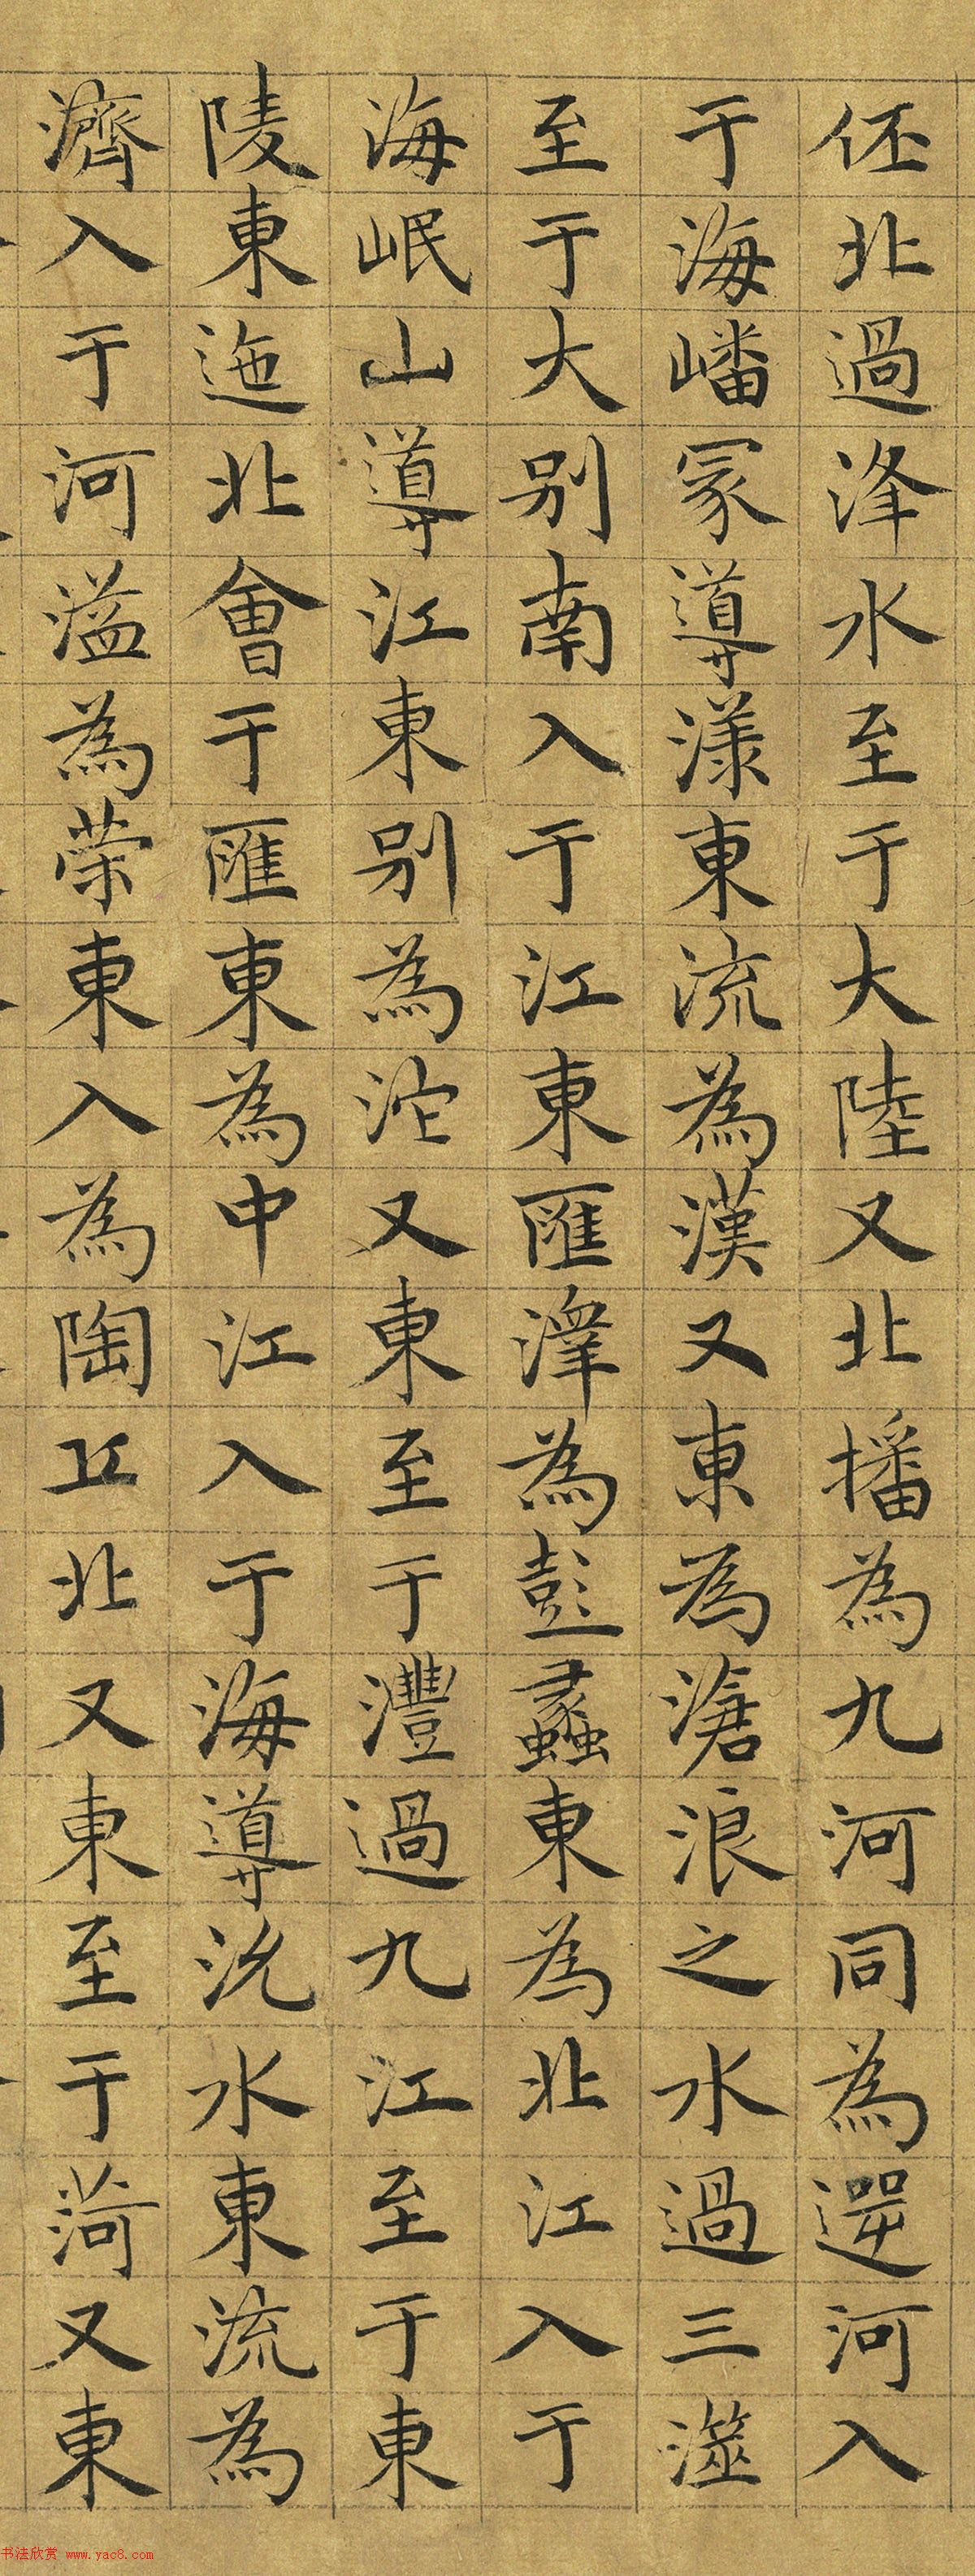 伾北過洚水至于大陸又北播為九河同為逆河入
于海嶓冢導漾東流為漢又東為滄浪之水過三澨
至于大别南入于江東匯澤為彭蠡東為北江入于
海岷山導江東别為沱又東至于澧過九江至于東
陵東迤北會于匯東為中江入于海導沇水東流為
濟入于河溢為荣東入為陶丘北又東至于菏又東
书法欣赏 www.yac8.com